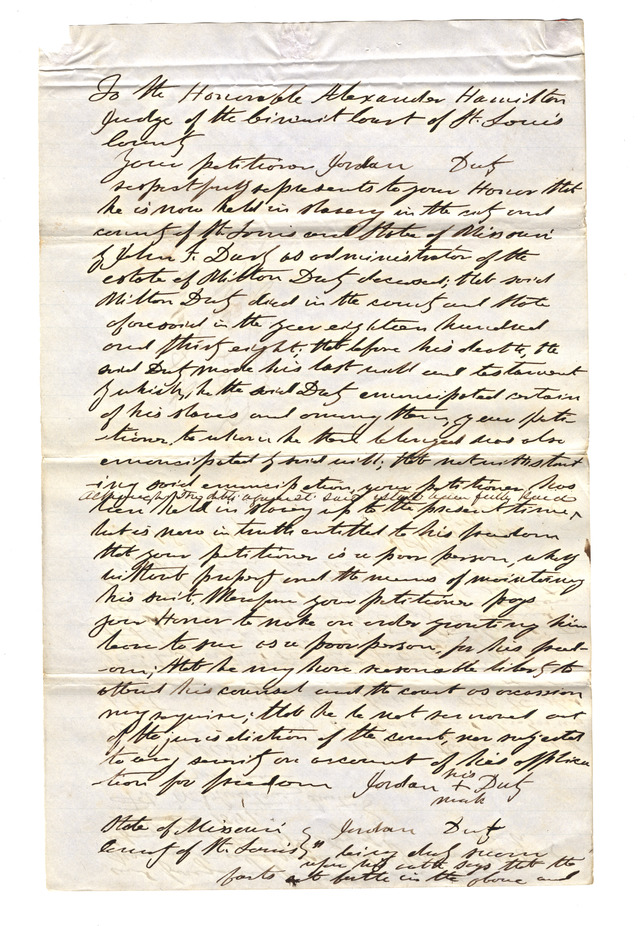 To the Honorable Alexander Hamilton
Judge of the Circuit Court of St. Louis
County
Your petitioner Jordan Duty
respectfully represents to your Honor that
he is now held in slavery in the city and
county of St. Louis and State of Missouri
by John F. Darby as administrator of the
estate of Milton Duty deceased; that said
Milton Duty died in the county and State
aforesaid in the year eighteen hundred
and thirty eight; that before his death, the
said Duty made his last will and testament
by which, he the said Duty emancipated certain
of his slaves and among them, your peti
tioner, to whom he then belonged was also
emancipated by said will; that notwithstand
ing said emancipation, your petitioner, has
although debts against said estate been fully paid
been held in slavery up to the present time,
but is now in truth entitled to his freedom
that your petitioner is a poor person, wholly
without property and the means of maintaining
his suit. Wherefore your petitioner prays
your Honor to make an order granting him
leave to sue as a poor person, for his freed
om; that he may have reasonable liberty to
attend his counsel and the court as occasion
may require; that he be not removed out
of the jurisdiction of the court, nor subjected
to any severity on account of his applica
tion for freedom Jordan his + mark Duty
State of Missouri Jordan Duty
County of St. Louis being duly sworn
upon his oath says that the
facts set forth in the above and